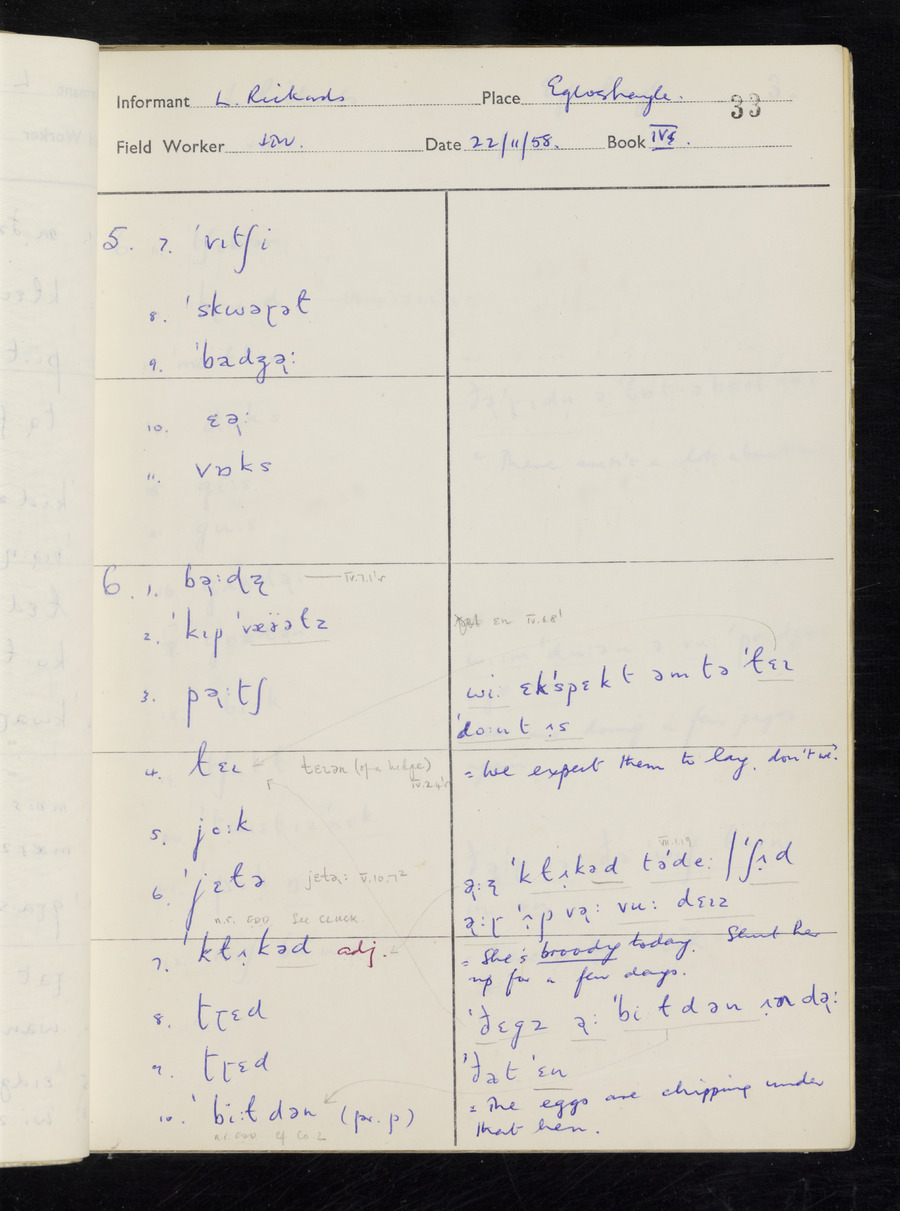 Informant L. Rickards Place Egloshayle. 33
Field Worker Date 22/11/58. Book IV
5. 7. ˈvɪtʃi
8. ˈskwəɽət
9. ˈbadʒəː
10. ɛəː
11. vɒks
6. 1. bəːdz — IV.7.1
2. ˈkɪp
3. pəːtʃ
4. ɫɛɪ (of a hedge) IV.2.4
5. joːk
6. ˈjɛɫə V.10.7
n.i. SEE CLUCK
7. ˈkɫʌkəd adj.
8. tɽɛd
9. tɽɛd
10. ˈbiːɫdən (pr. p)
n.i.
ɛn IV.6.8
wiː ɛkˈspɛkt əm tə ˈɫɛɪ
ˈdoːnt ʌs
= We expect them to lay, don't we?
VII.1.19
ˈkɫʌkəd təˈdeː | ˈʃʌd
əːɽ ˈʌp vəː vuː dɛɪz
= She's broody today. Shut her
up for a few days.
ˈðegz əː ˈbiːɫdən ʌndəː
ˈðat ˈɛn
= The eggs are chipping under
that hen.